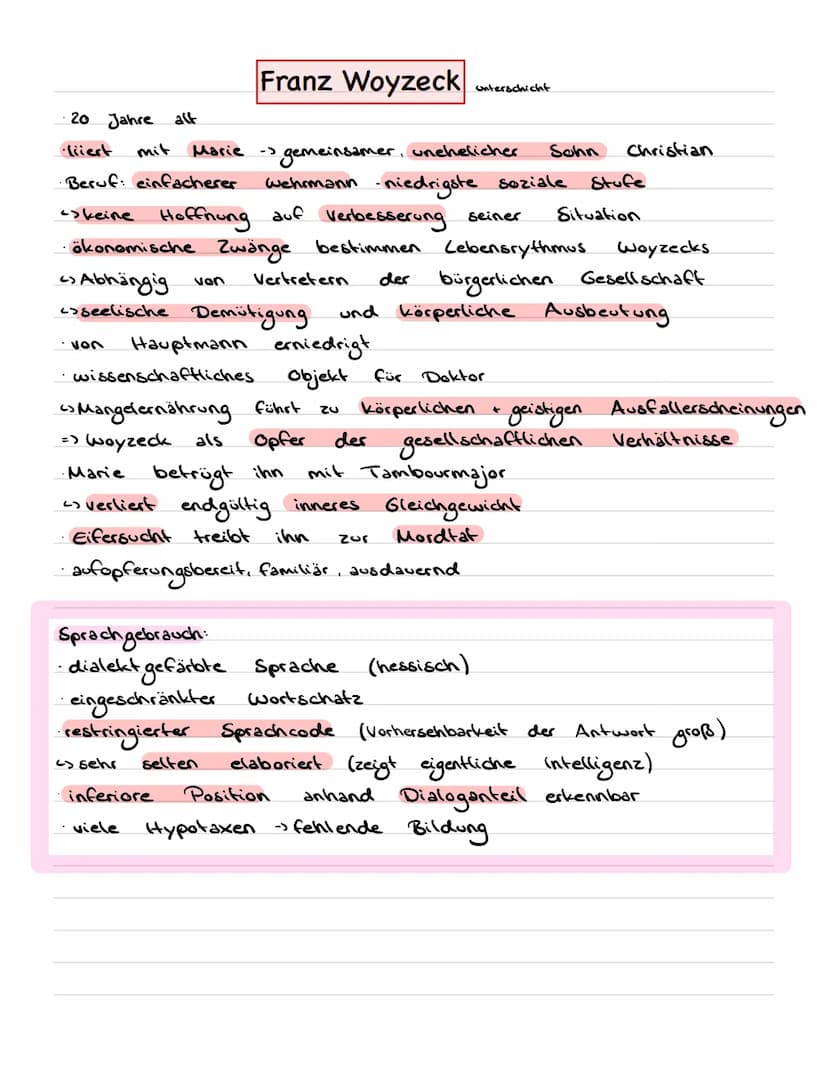 Franz Woyzeck unterschicht
· 20 Jahre alt
· liiert mit Marie -> gemeinsamer, unehelicher Sohn Christian
· Beruf: einfacherer Wehrmann - niedrigste soziale Stufe
↳ keine Hoffnung auf Verbesserung seiner Situation
· ökonomische Zwänge bestimmen Lebensrythmus Woyzecks
↳ Abhängig von Vertretern der bürgerlichen Gesellschaft
↳ seelische Demütigung und körperliche Ausbeutung
· von Hauptmann erniedrigt
· wissenschaftliches Objekt für Doktor
↳ Mangelernährung führt zu körperlichen + geistigen Ausfallerscheinungen
=> Woyzeck als Opfer der gesellschaftlichen Verhältnisse
· Marie betrügt ihn mit Tambourmajor
↳ verliert endgültig inneres Gleichgewicht
· Eifersucht treibt ihn zur Mordtat
· aufopferungsbereit, familiär, ausdauernd
Sprachgebrauch:
· dialektgefärbte Sprache (hessisch)
· eingeschränkter Wortschatz
· restringierter Sprachcode (Vorhersehbarkeit der Antwort groß)
↳ sehr selten elaboriert (zeigt eigentliche Intelligenz)
· inferiore Position anhand Dialoganteil erkennbar
· viele Hypotaxen -> fehlende Bildung